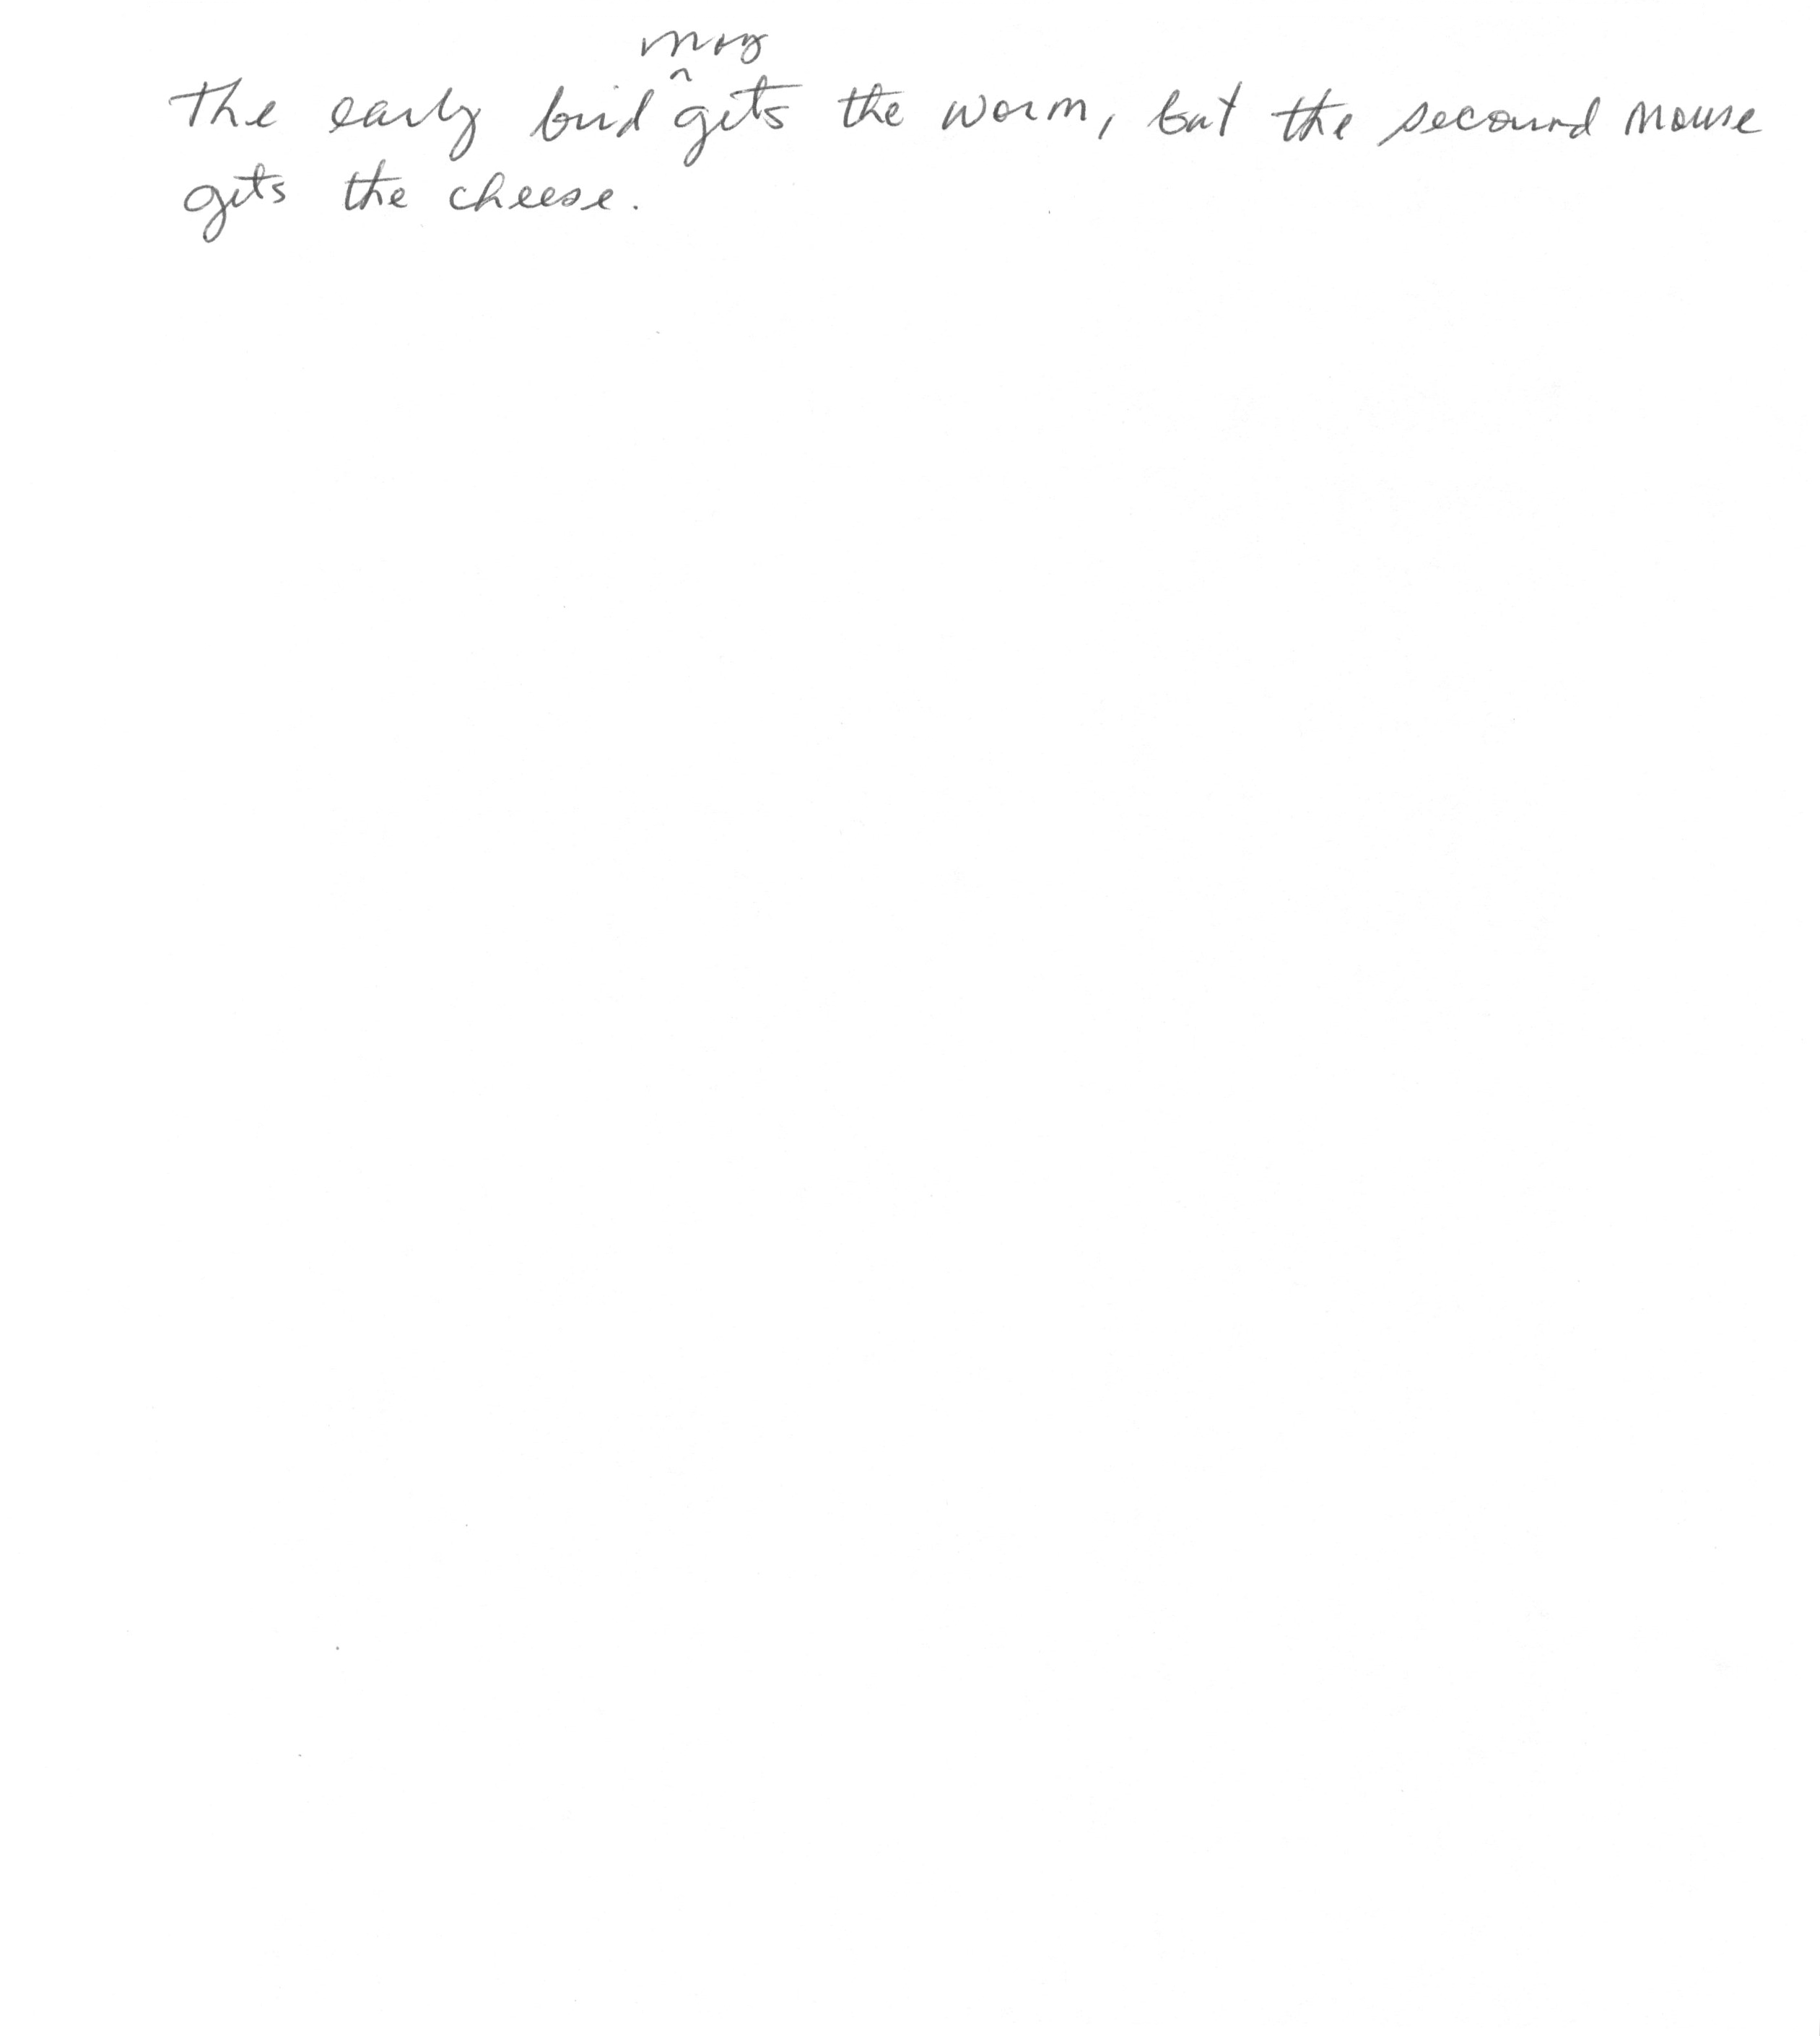 The early bird ^may gets the worm, but the second mouse
gets the cheese.